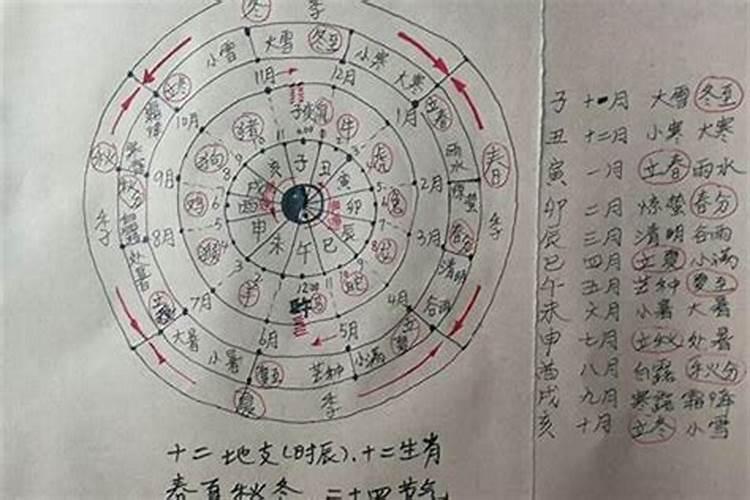 冬 季
小雪 大雪 冬至 小寒 大寒
立冬 11月 12月 1月 立春
霜降 10月 子 鼠 牛 雨水
秋 寒露 猪 虎 春
狗 亥 子 丑 寅
秋分 9月 鸡 戌 2月 惊蛰
酉 卯 兔
季 白露 8月 申 辰 3月 春分 季
处暑 猴 未 午 巳 龙 清明
立秋 7月 羊 12:00 蛇 4月 谷雨
大暑 6月 午 马 5月 立夏
小暑 夏至 芒种 小满
夏 季
十二地支(时辰)、十二生肖
春夏秋冬 二十四节气
子 十一月 大雪 冬至
丑 十二月 小寒 大寒
寅 一月 立春 雨水
卯 二月 惊蛰 春分
辰 三月 清明 谷雨
巳 四月 立夏 小满
午 五月 芒种 夏至
未 六月 小暑 大暑
申 七月 立秋 处暑
酉 八月 白露 秋分
戌 九月 寒露 霜降
亥 十月 立冬 小雪